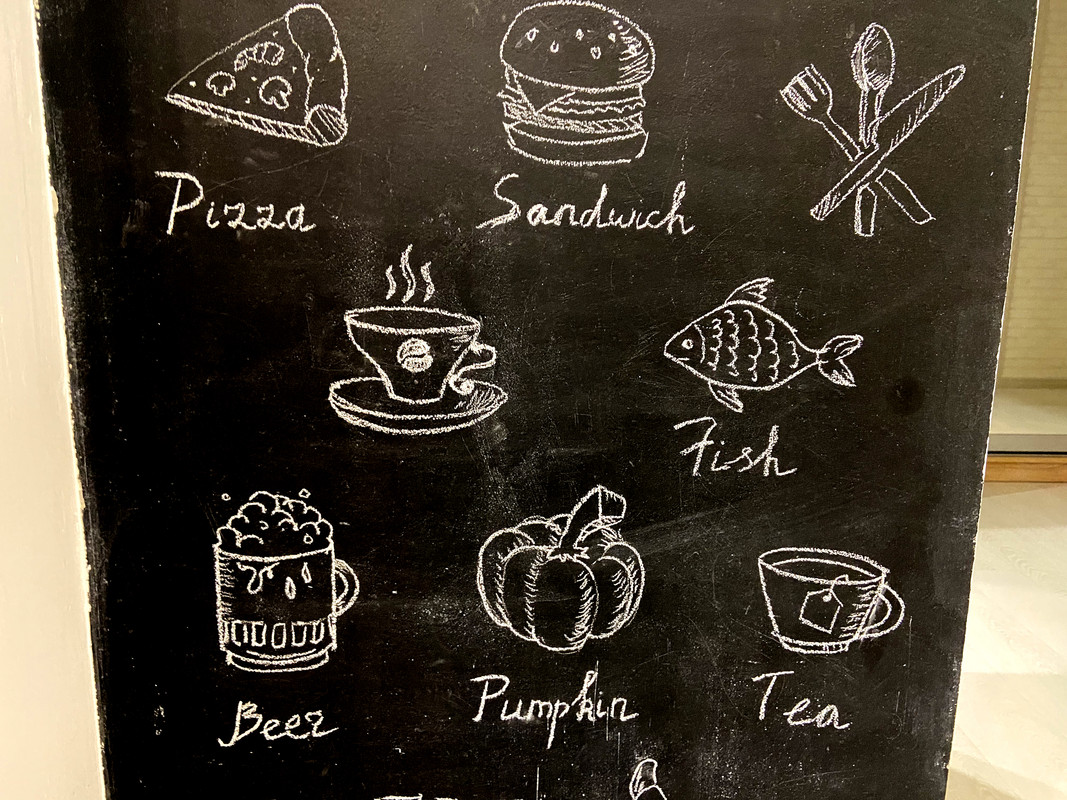 Pizza
Sandwich
Fish
Beer
Pumpkin
Tea